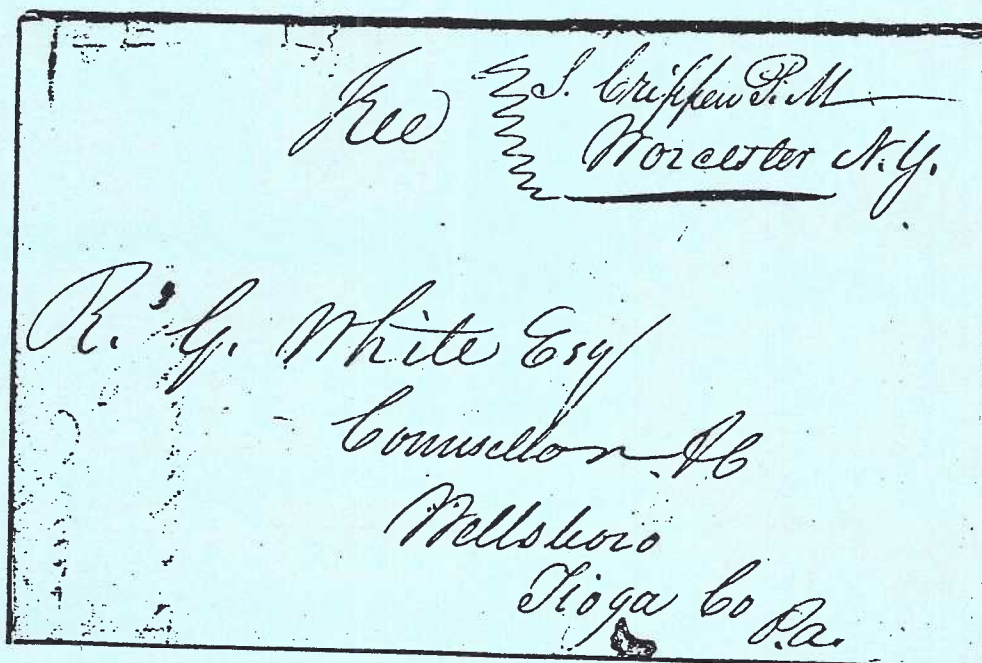 Free S. Crippen P. M
Worcester N. Y.
R. G. White Esq
Counsellor &C
Wellsboro
Tioga Co Pa.